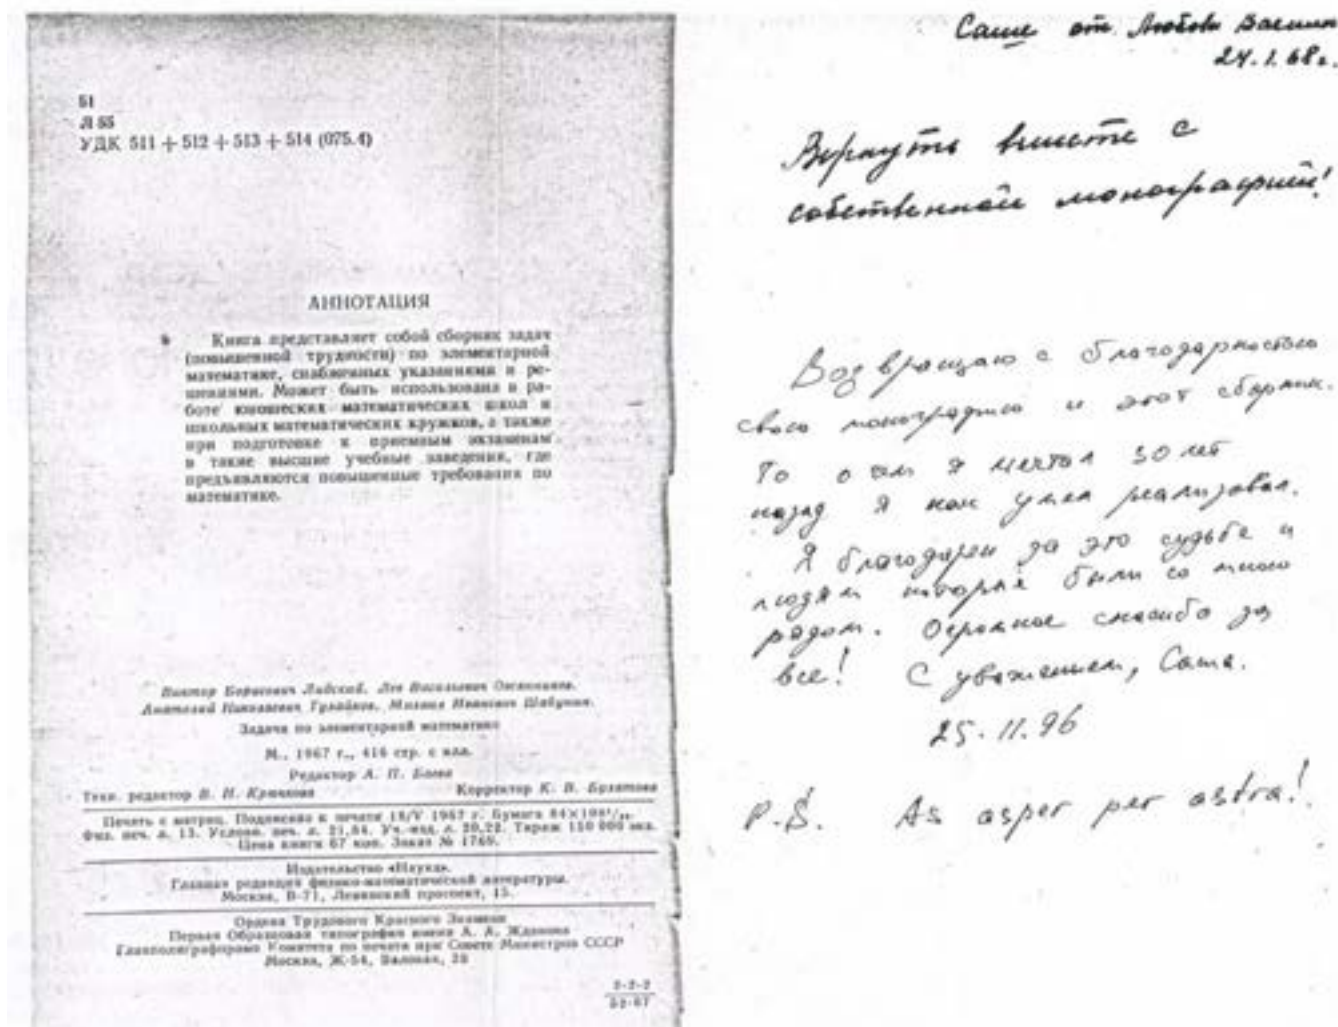 51
Л 55
УДК 511 + 512 + 513 + 514 (075.4)
АННОТАЦИЯ
Книга представляет собой сборник задач
(повышенной трудности) по элементарной
математике, снабженных указаниями и ре-
шениями. Может быть использована в ра-
боте юношеских математических школ и
школьных математических кружков, а также
при подготовке к приемным экзаменам
в такие высшие учебные заведения, где
предъявляются повышенные требования по
математике.
Виктор Борисович Лидский, Лев Васильевич Овсянников,
Анатолий Николаевич Тулайков, Михаил Иванович Шабунин.
Задачи по элементарной математике
М., 1967 г., 416 стр. с илл.
Редактор А. П. Баева
Техн. редактор В. Н. Крючкова Корректор К. В. Булатова
Печать с матриц. Подписано к печати 18/V 1967 г. Бумага 84×108¹/₃₂.
Физ. печ. л. 13. Условн. печ. л. 21,84. Уч.-изд. л. 20,22. Тираж 150 000 экз.
Цена книги 67 коп. Заказ № 1769.
Издательство «Наука».
Главная редакция физико-математической литературы.
Москва, В-71, Ленинский проспект, 15.
Ордена Трудового Красного Знамени
Первая Образцовая типография имени А. А. Жданова
Главполиграфпрома Комитета по печати при Совете Министров СССР
Москва, Ж-54, Валовая, 28
2-2-2
52-67
Саше от Любови Васильев
24.1.68г.
Вернуть вместе с
собственной монографией!
Возвращаю с благодарностью
свою монографию и этот сборник.
То о чем я мечтал 30 лет
назад я как умел реализовал.
Я благодарен за это судьбе и
людям которые были со мною
рядом. Огромное спасибо за
все! С уважением, Саша.
25.11.96
P.S. As asper per astra!